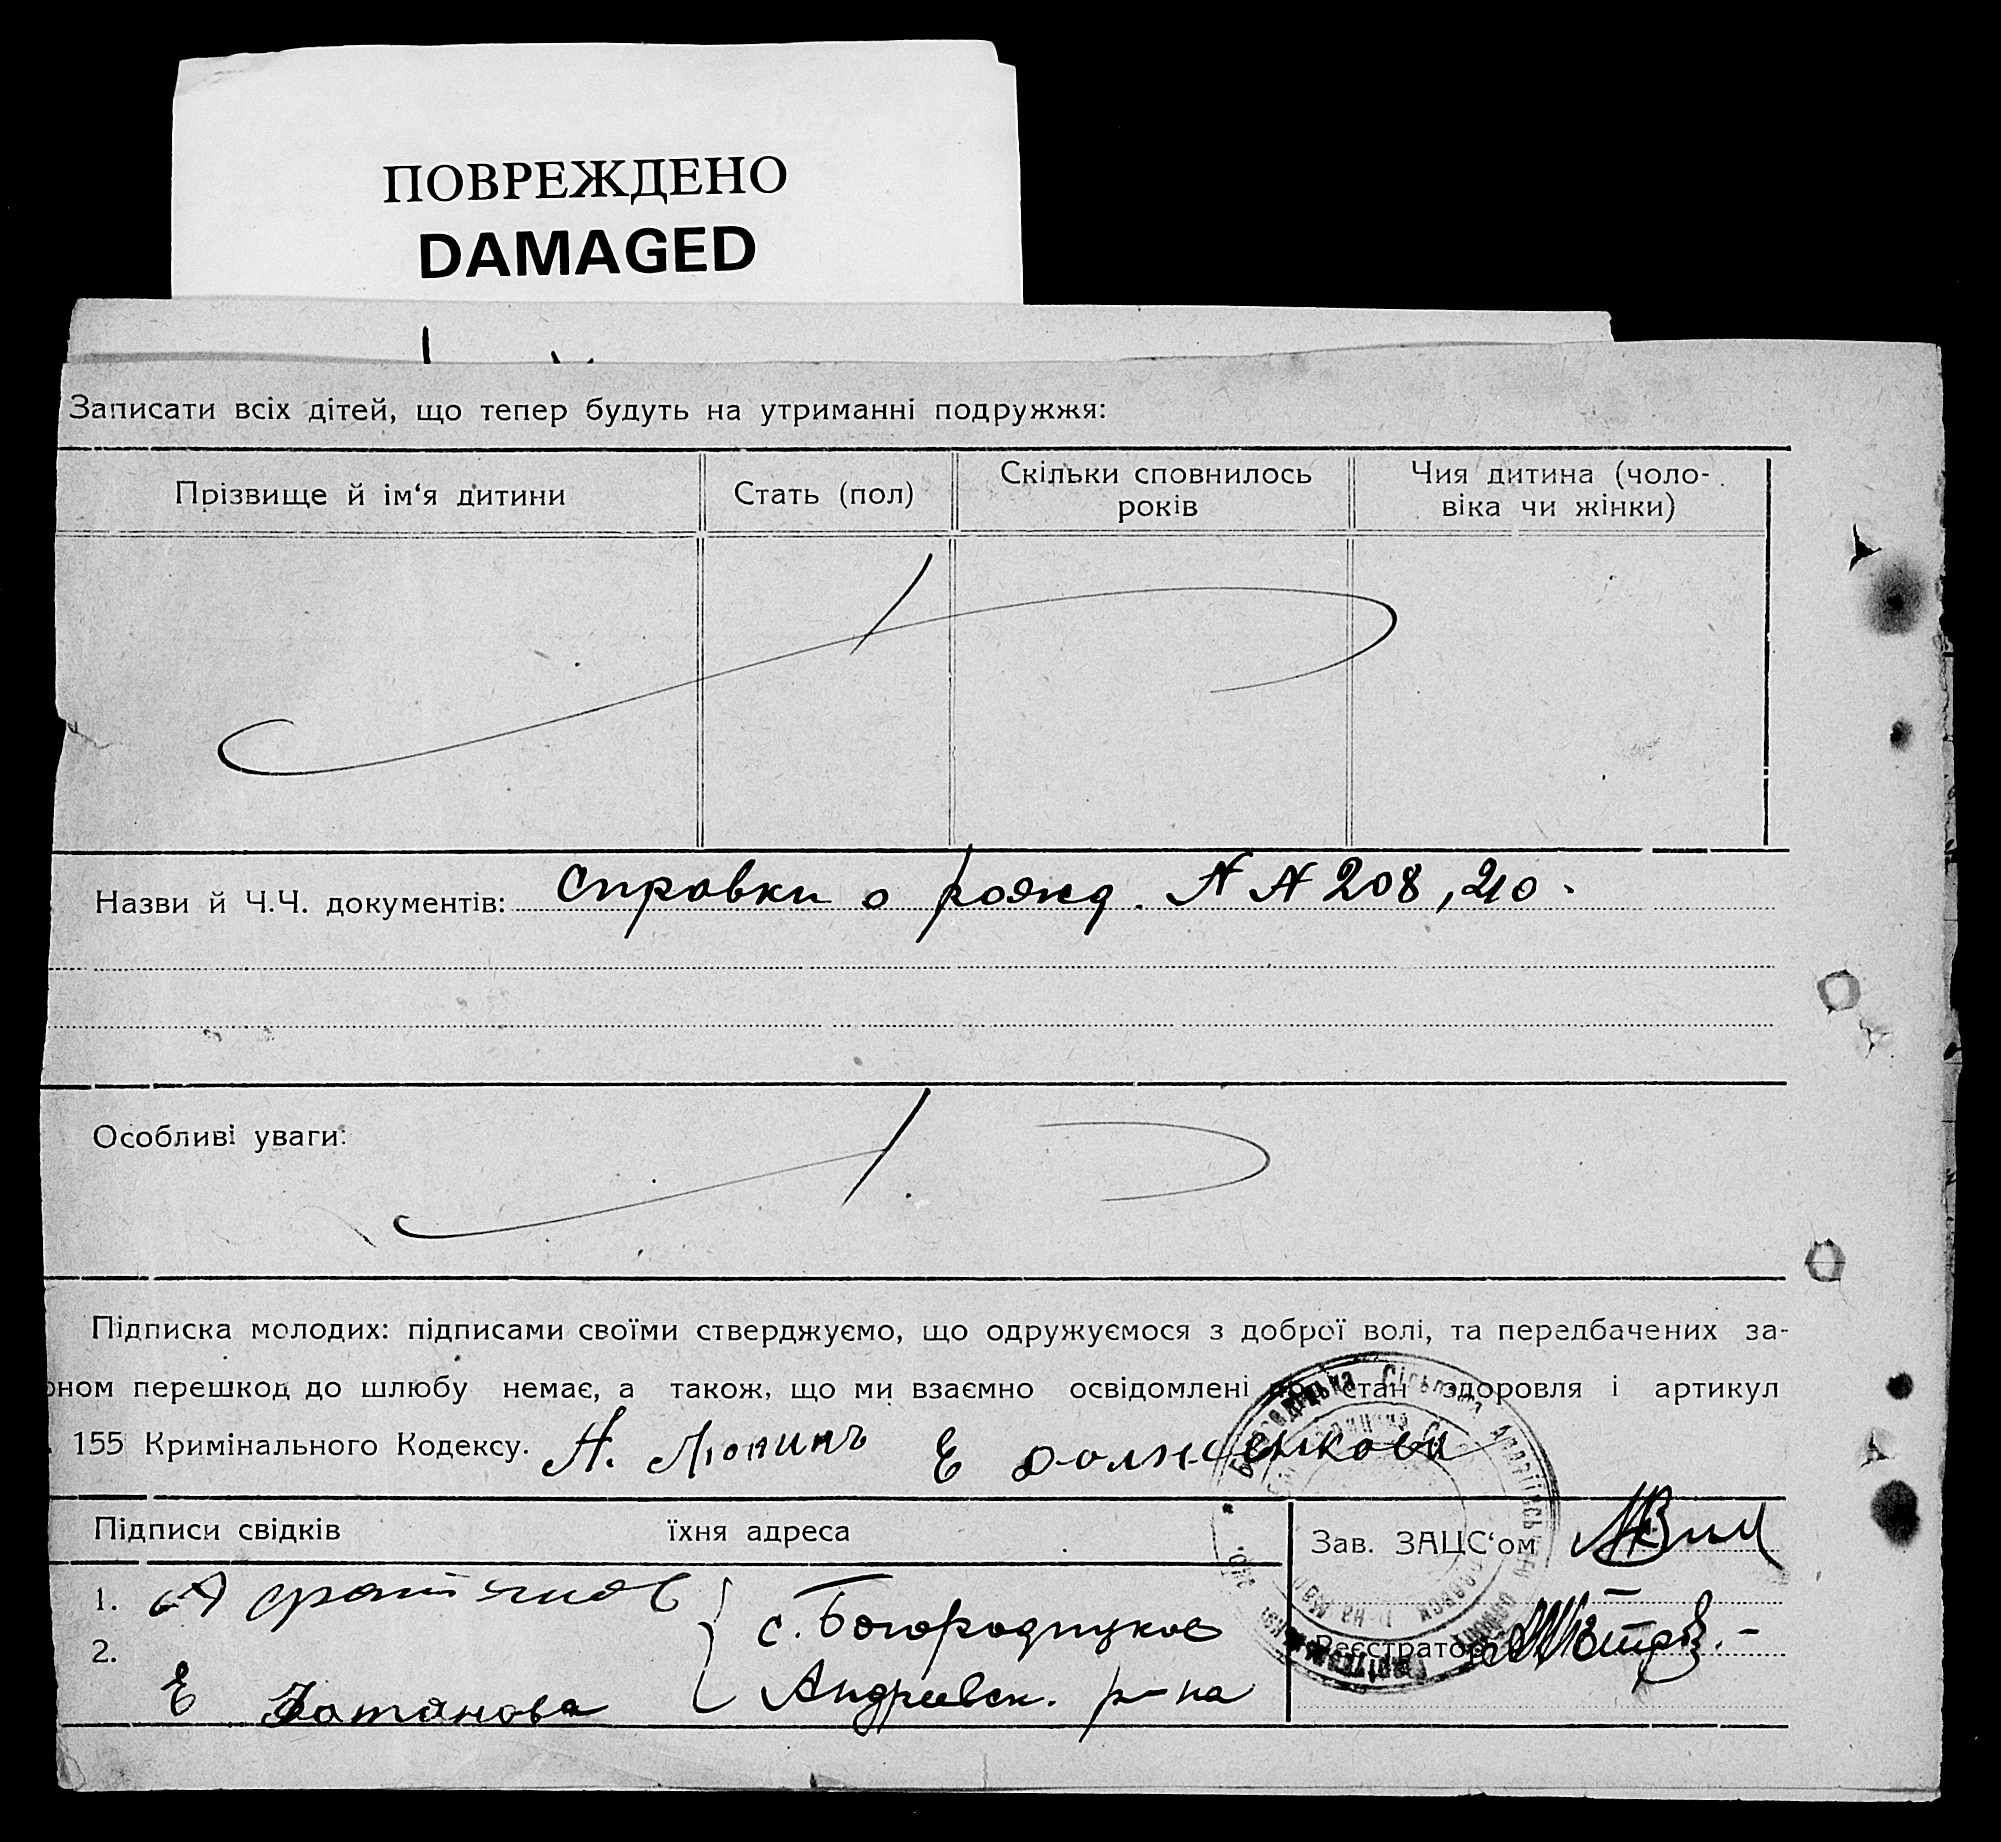 ПОВРЕЖДЕНО
DAMAGED
Записати всіх дітей, що тепер будуть на утриманні подружжя:
Прізвище й ім‘я дитини
Стать (пол)
Скільки сповнилось
років
Чия дитина (чоло-
віка чи жінки)
Назви й Ч.Ч. документів: Справки о рожд. N N 208, 210.
Особливі уваги:
Підписка молодих: підписами своїми стверджуємо, що одружуємося з доброї волі, та передбачених за-
оном перешкод до шлюбу немає, а також, що ми взаємно освідомлені про стан здоровля і артикул
155 Кримінального Кодексу. А. Е Долженкова
Підписи свідків
їхня адреса
Зав. ЗАЦС‘ом
1. А
с. Богородицкое
Реєстратор
2. Е
Андреевск. р-на